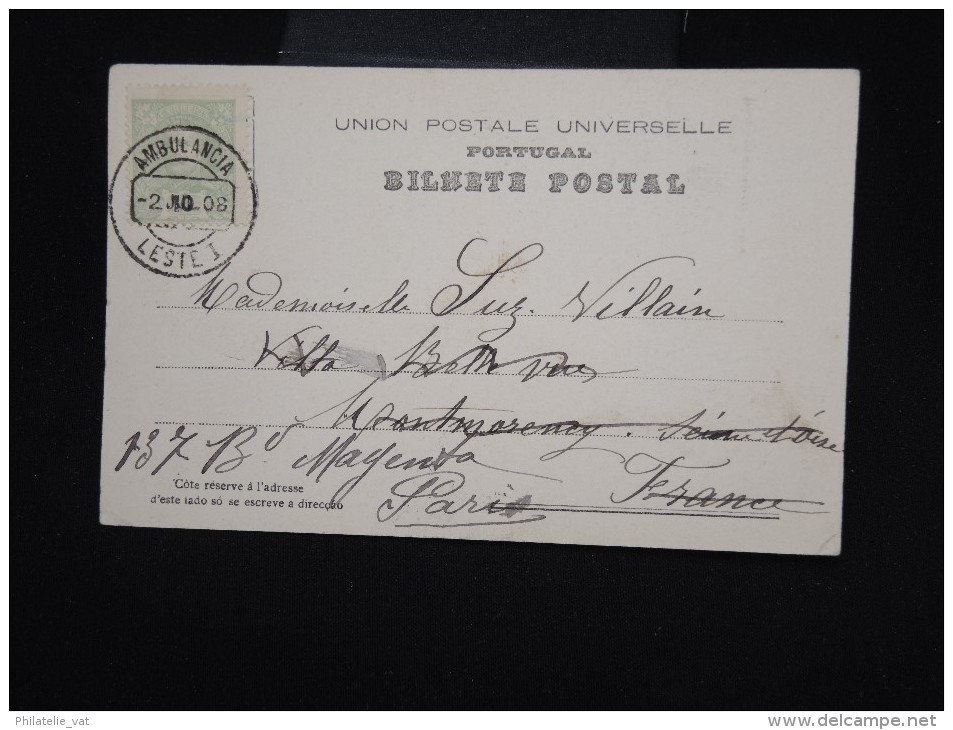 UNION POSTALE UNIVERSELLE
PORTUGAL
BILHETE POSTAL
AMBULANCIA
LESTE I
Mademoiselle Suz. Villain
Villa Belle vue
Montmorency. Seine et Oise
137 Bd Magenta
France
Paris
Côte réservé á l'adresse
d'este lado só se escreve a direcção
Philatelie_vat
delcampe.net